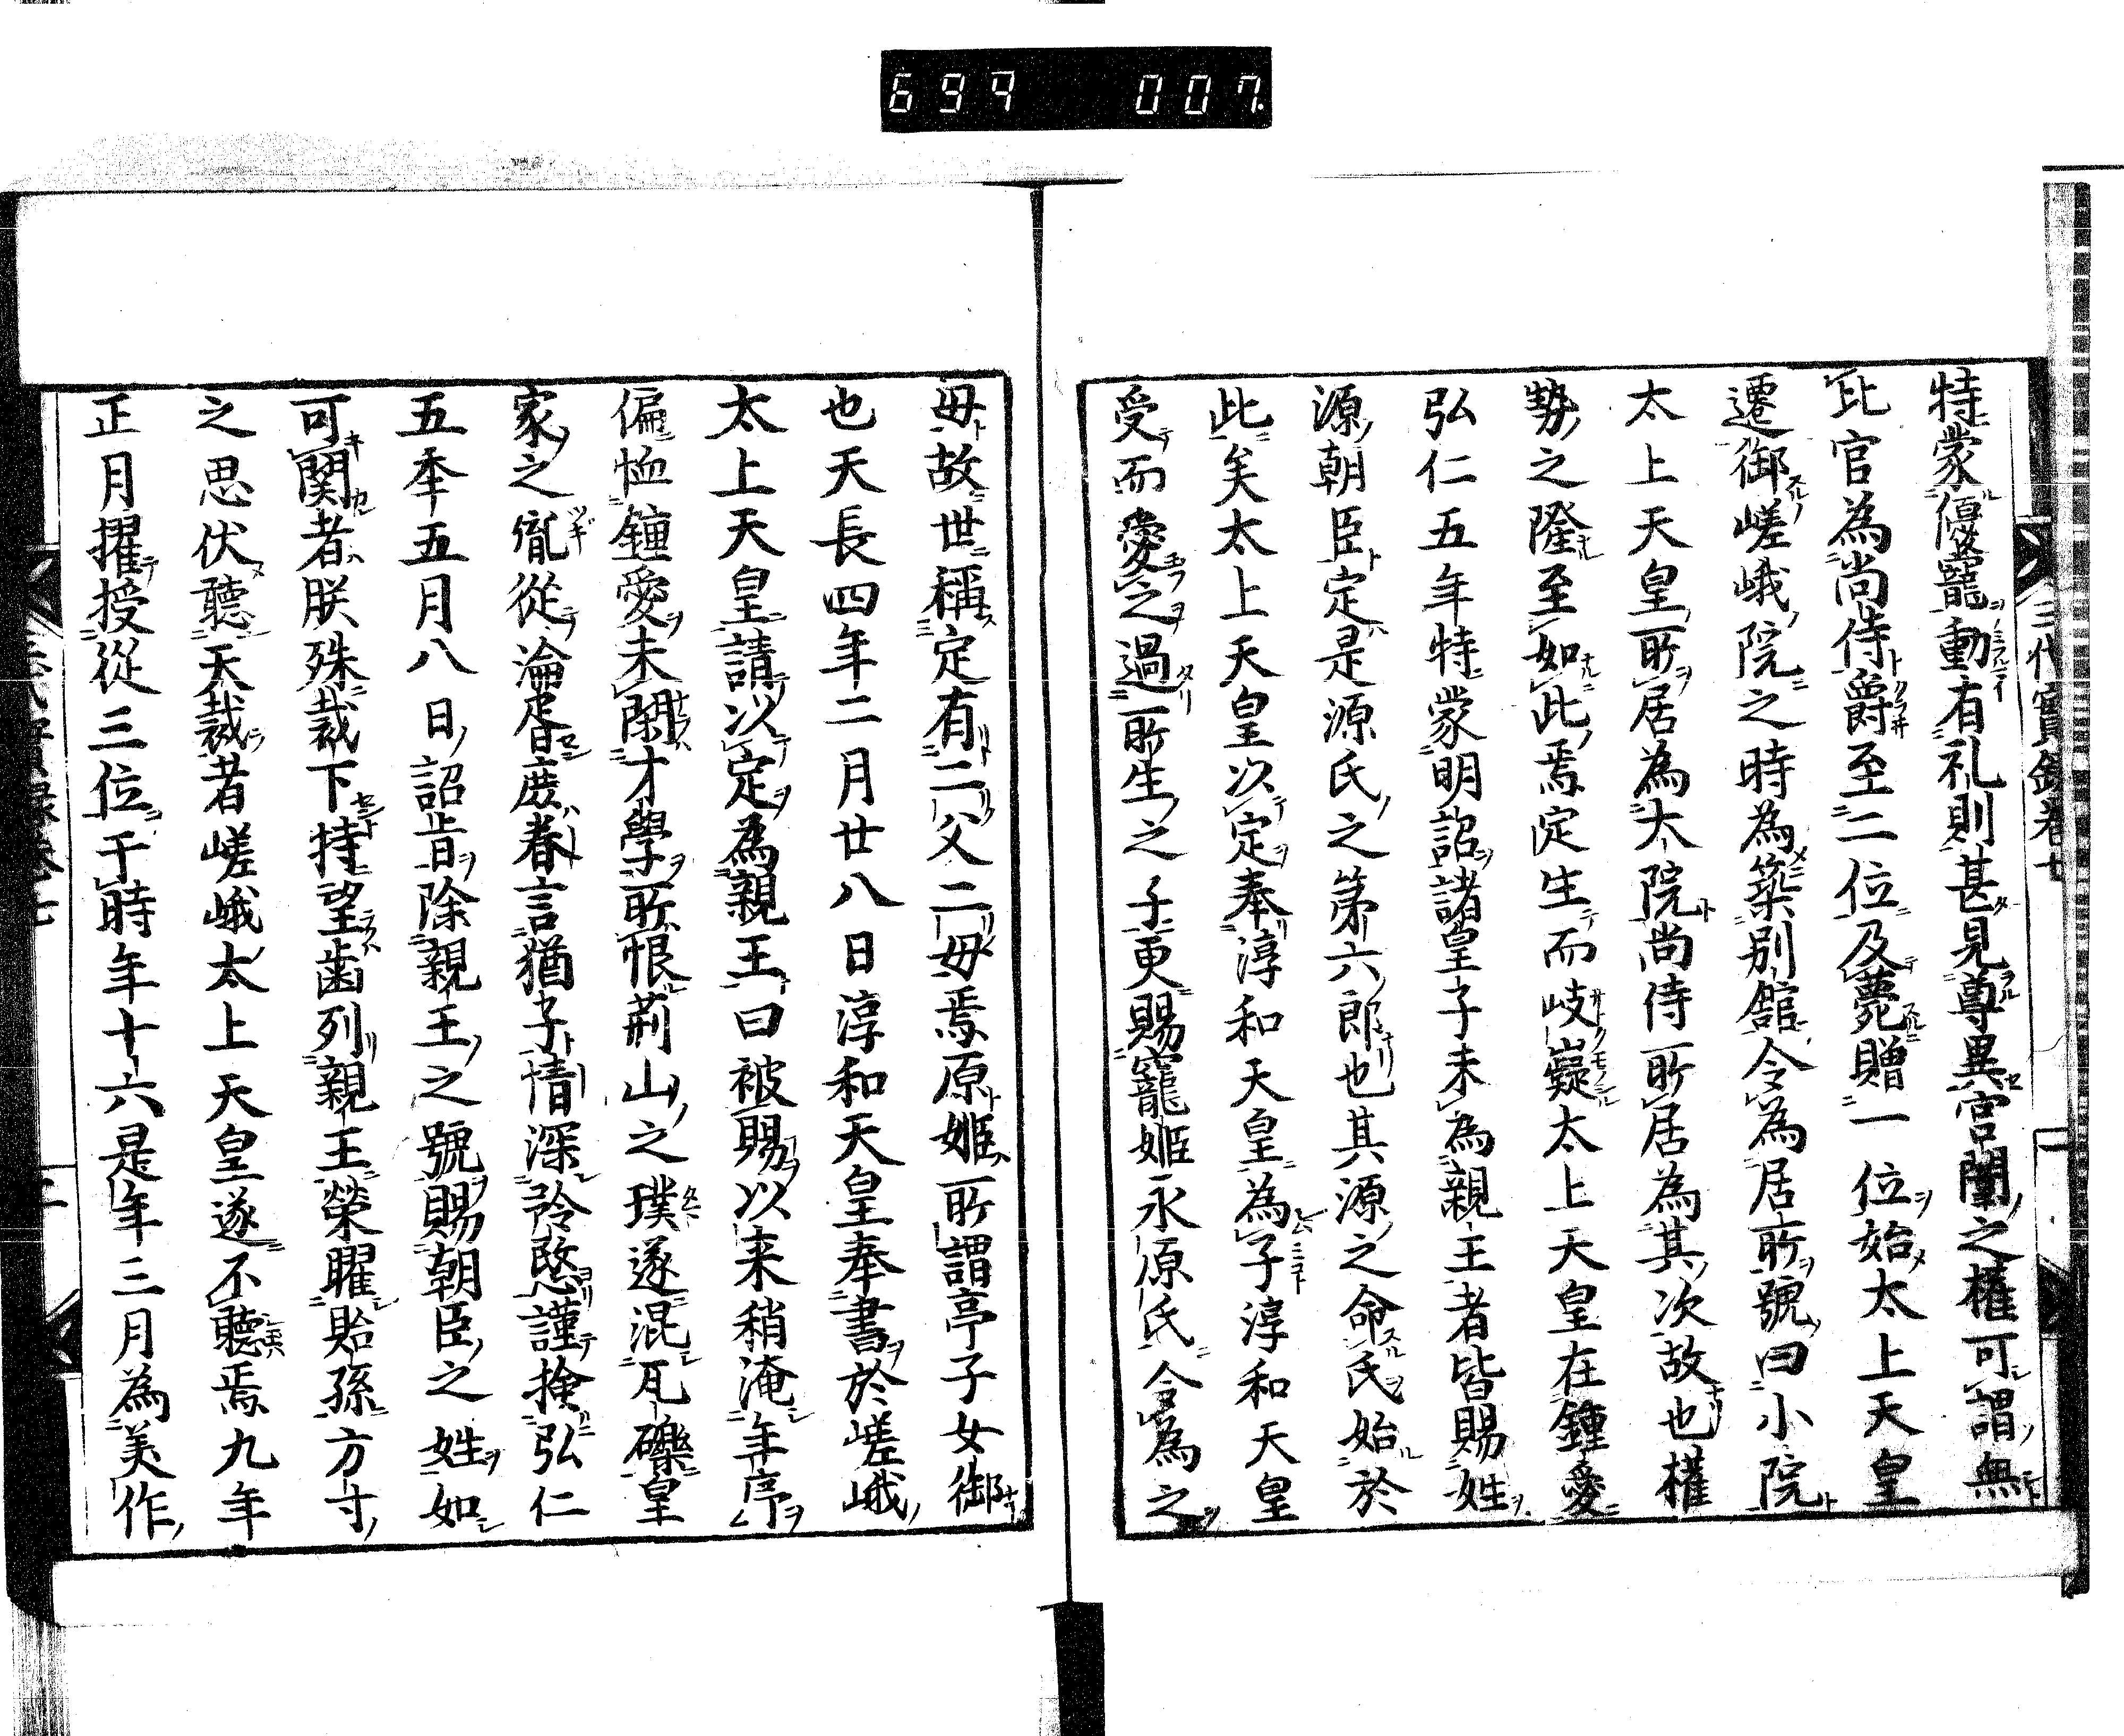 694 007
三代實錄卷七
特蒙優寵動有礼則甚見尊異宮闈之権可謂無
比官為尚侍爵至二位及薨贈一位始太上天皇
遷御嵯峨院之時為築別舘令為居所號曰小院
太上天皇所居為大院尚侍所居為其次故也権
勢之隆至如此焉定生而岐嶷太上天皇在鍾愛
弘仁五年特蒙明詔諸皇子未為親王者皆賜姓
源朝臣定是源氏之第六郎也其源之命氏始於
此矣太上天皇以定奉淳和天皇為子淳和天皇
受而愛之過所生之子更賜寵姬永原氏令為之
母故世稱定有二父二母焉原姬所謂亭子女御
也天長四年二月廿八日淳和天皇奉書於嵯峨
太上天皇請以定為親王曰被賜以来稍淹年序
偏恤鍾愛未閑才學所恨荊山之璞遂混瓦礫皇
家之胤從淪胥庶眷言猶子情深矜愍謹撿弘仁
五季五月八日詔旨除親王之號賜朝臣之姓如
可関者朕殊裁下特望歯列親王榮曜貽孫方寸
之思伏聽天裁者嵯峨太上天皇遂不聽焉九年
正月擢授從三位于時年十六是年三月為美作